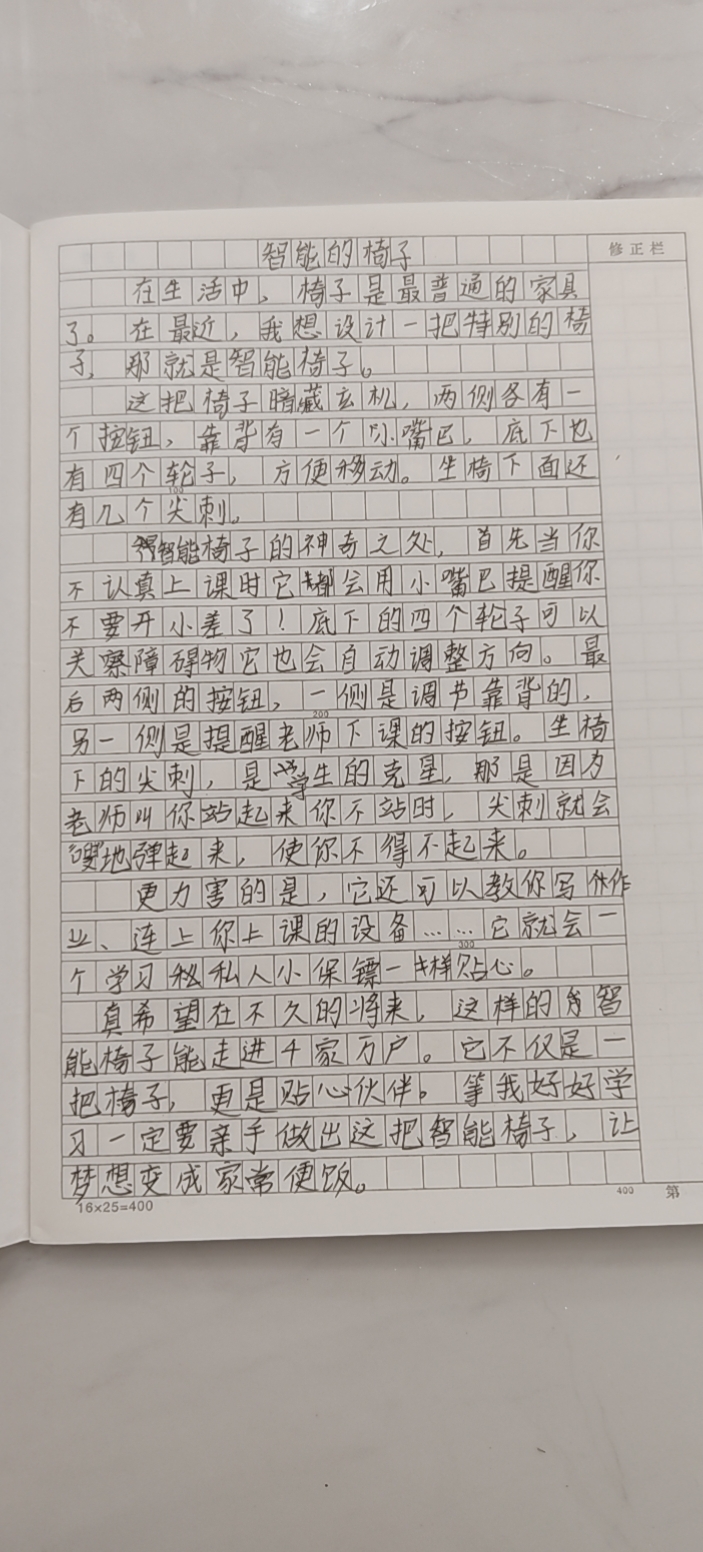 智能的椅子
修正栏
在生活中，椅子是最普通的家具
了。在最近，我想设计一把特别的椅
子，那就是智能椅子。
这把椅子暗藏玄机，两侧各有一
个按钮，靠背有一个小嘴巴，底下也
有四个轮子，方便移动。坐椅下面还
100
有几个尖刺。
智能椅子的神奇之处，首先当你
不认真上课时它都会用小嘴巴提醒你
不要开小差了！底下的四个轮子可以
关察障碍物它也会自动调整方向。最
后两侧的按钮，一侧是调节靠背的，
200
另一侧是提醒老师下课的按钮。坐椅
下的尖刺，是学生的克星，那是因为
老师叫你站起来你不站时，尖刺就会
嗖地弹起来，使你不得不起来。
更力害的是，它还可以教你写作
业、连上你上课的设备……它就会一
300
个学习私人小保镖一样贴心。
真希望在不久的将来，这样的智
能椅子能走进千家万户。它不仅是一
把椅子，更是贴心伙伴。等我好好学
习一定要亲手做出这把智能椅子，让
梦想变成家常便饭。
16×25=400
400
第